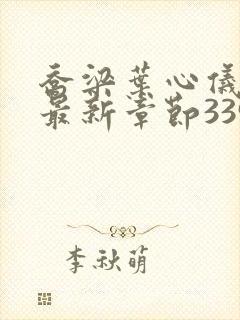 乔梁叶心仪
最新章节339
李秋萌